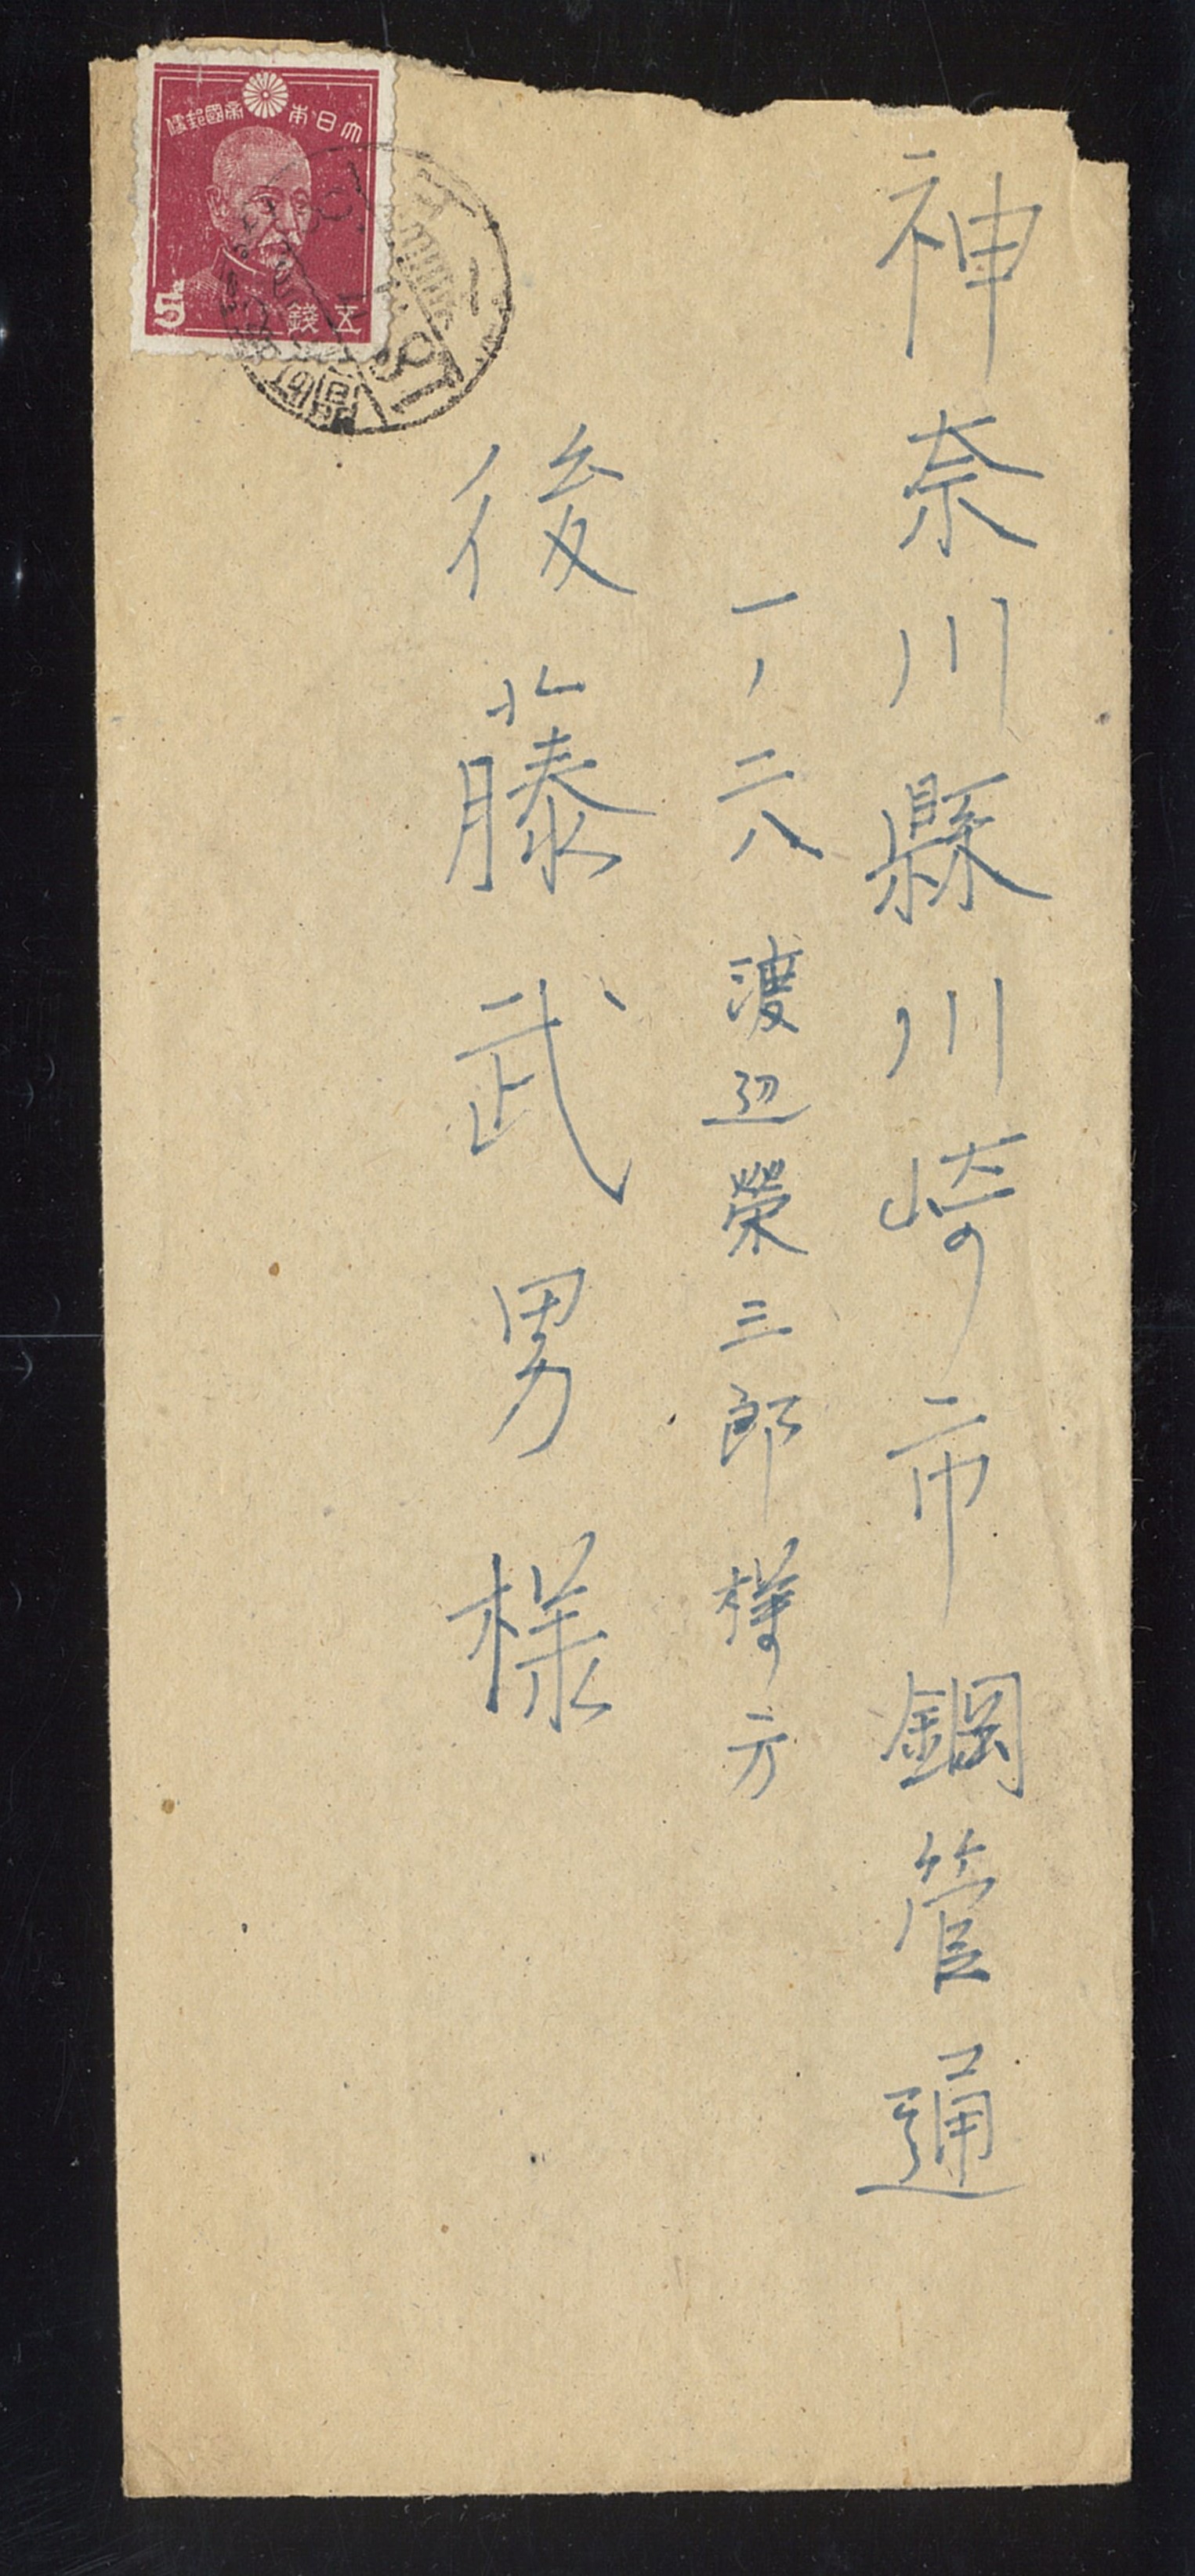 神奈川縣川崎市鋼管通
一ノ二八 渡辺榮三郎様方
後藤武男様
大日本帝國郵便
5 五錢